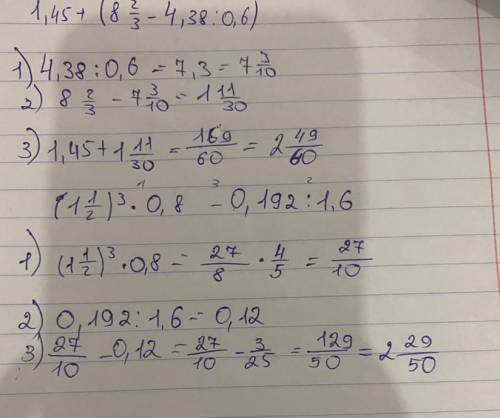 1,45 + (8 2/3 - 4,38 : 0,6)
1) 4,38 : 0,6 = 7,3 = 7 3/10
2) 8 2/3 - 7 3/10 = 1 11/30
3) 1,45 + 1 11/30 = 169/60 = 2 49/60
1 3 2
(1 1/2)³ · 0,8 - 0,192 : 1,6
1) (1 1/2)³ · 0,8 = 27/8 · 4/5 = 27/10
2) 0,192 : 1,6 = 0,12
3) 27/10 - 0,12 = 27/10 - 3/25 = 129/50 = 2 29/50